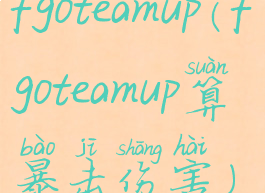 fgoteamup(f
suàn
goteamup算
bào jī shāng hài
暴击伤害)